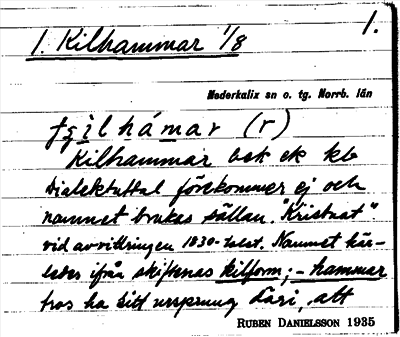 1.
1. Kilhammar 1/8
Nederkalix sn o. tg. Norrb. län
Kilhammar bok ek kb
Dialektuttal förekommer ej och
namnet brukas sällan. "Kristnat"
vid avvittringen 1830-talet. Namnet här-
ledes ifrån skiftenas kilform; - hammar
tros ha sitt ursprung däri, att
RUBEN DANIELSSON 1935